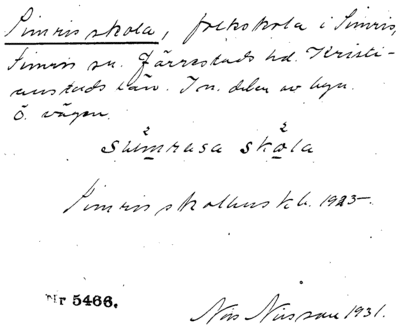 Simris skola, folkskola i Simris,
Simris sn. Järrestads hd. Kristi-
anstads län. I n. delen av byn.
Ö. vägen.
skola
Simris skolhus 1925.
Nr 5466.
Nils Nilsson 1931.